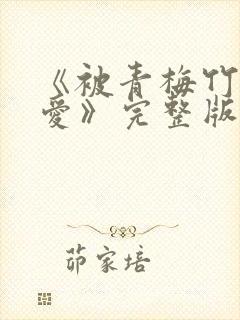 《被青梅竹
爱》完整版
茆家培